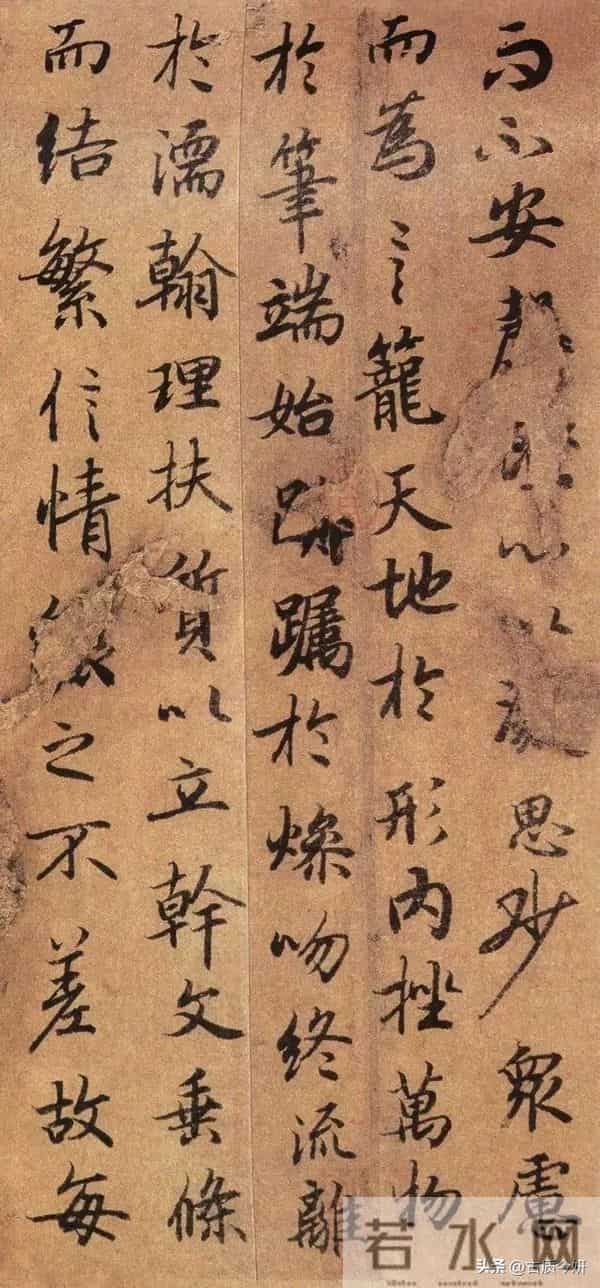 而不安心以思眇衆慮
而為言籠天地於形內挫萬物
於筆端始躅於燥吻終流離
於濡翰理扶質以立幹文垂條
而結繁信情之不差故每
若水网
头条 @古质今研